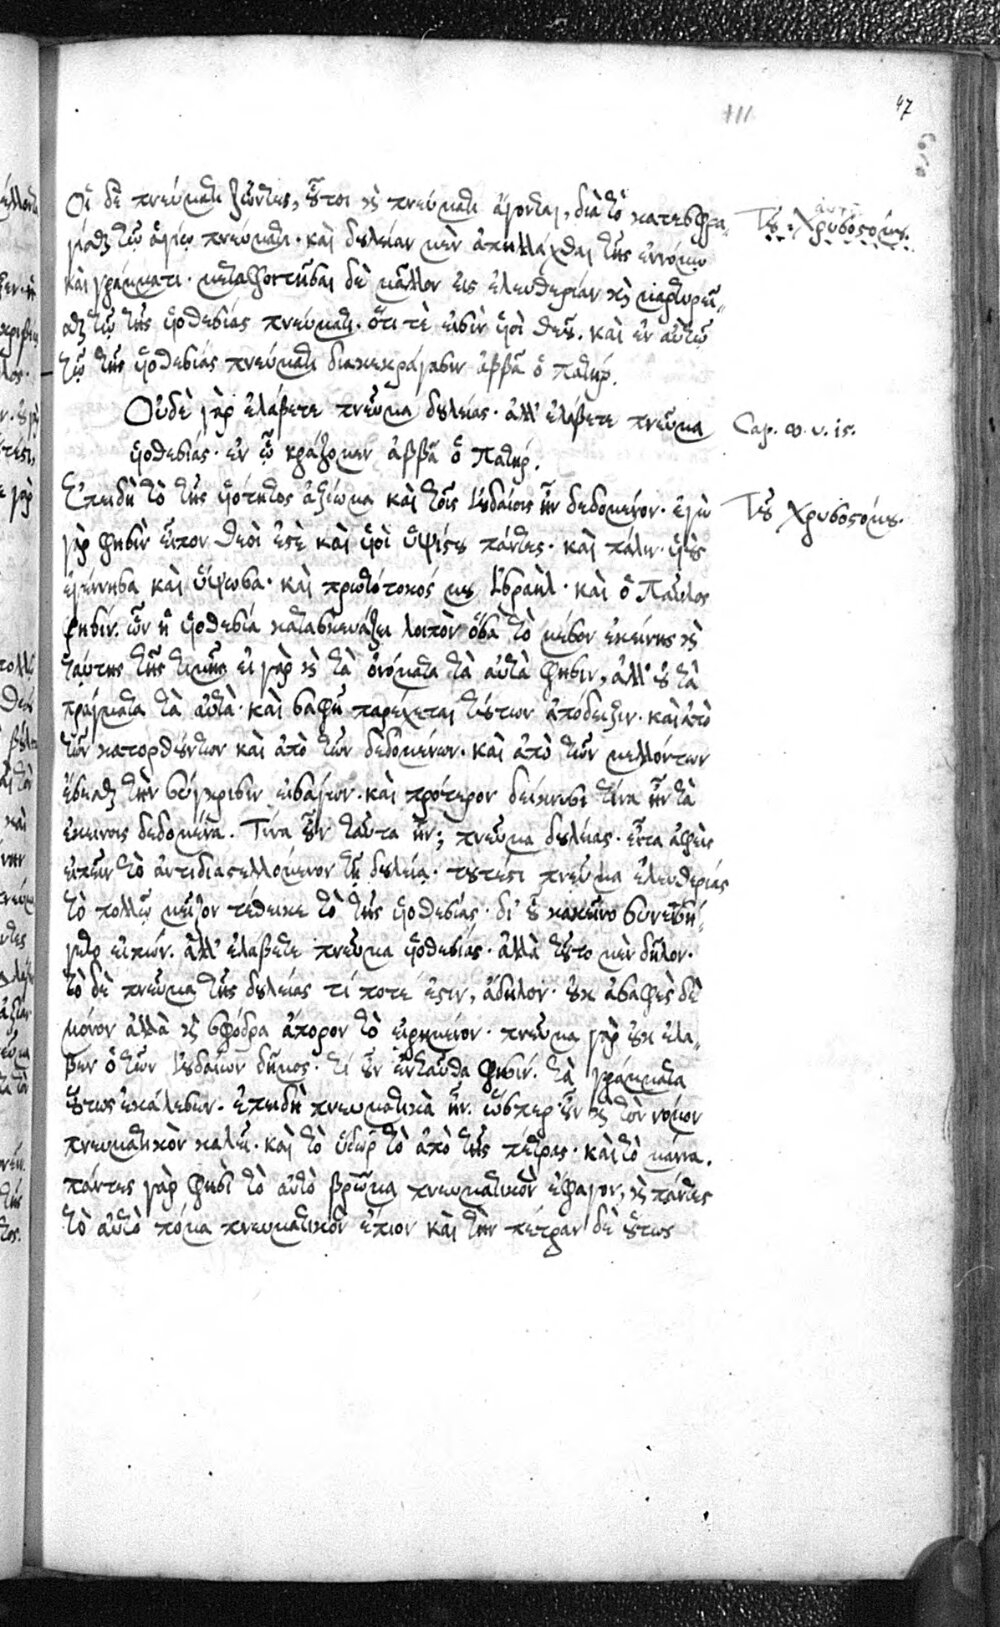 47
111
Οἱ δὲ πνεύματι ζῶντες, οὗτοι κỳ πνεύματι ἄγονται, διὰ τὸ κατεσφρα-
γίσθαι τῷ ἁγίῳ πνεύματι· καὶ δουλείαν μὲν ἀπηλλάχθαι τῆς ἐννόμῳ
καὶ γράμματι· μεταφοιτῆσαι δὲ μᾶλλον εἰς ἐλευθερίαν καὶ μαρτυρεῖ-
σθαι τῷ τῆς υἱοθεσίας πνεύματι. ὅτι τὲ εἰσὶν υἱοὶ θεοῦ. καὶ ἐν αὐτῷ
τῷ τῆς υἱοθεσίας πνεύματι διακεκράγασιν ἀββᾶ ὁ πατήρ.
Οὐδὲ γὰρ ἐλάβετε πνεῦμα δουλείας· ἀλλ' ἐλάβετε πνεῦμα
υἱοθεσίας· ἐν ᾧ κράζομεν ἀββᾶ ὁ Πατήρ.
Ἐπειδὴ τὸ τῆς υἱότητος ἀξίωμα καὶ τοῖς Ἰουδαίοις ἦν δεδομένον· ἐγὼ
γὰρ φησὶν εἶπον θεοὶ ἐστὲ καὶ υἱοὶ ὑψίστου πάντες· καὶ πάλιν υἱοὺς
ἐγέννησα καὶ ὕψωσα· καὶ πρωτότοκός μου Ἰσραήλ· καὶ ὁ Παῦλος
φησίν. ὧν ἡ υἱοθεσία κατασκευάζει λοιπὸν ὅσα τὸ μέσον ἐκείνης καὶ
ταύτης τῆς τιμῆς εἰ γὰρ καὶ τὰ ὀνόματα τὰ αὐτὰ φησιν, ἀλλ' οὐ τὰ
πράγματα τὰ αὐτὰ· καὶ σαφῆ παρέχεται τούτων ἀπόδειξιν· καὶ ἀπὸ
τῶν κατορθούντων καὶ ἀπὸ τῶν δεδομένων· καὶ ἀπὸ τῶν μελλόντων
ἔσεσθαι τὴν σύγκρισιν εἰσάγων· καὶ πρότερον δείκνυσι τίνα ἦν τὰ
ἐκείνοις δεδομένα. Τίνα οὖν ταῦτα ἦν; πνεῦμα δουλείας· εἶτα ἀφεὶς
εἰπεῖν τὸ ἀντιδιαστελλόμενον τῇ δουλείᾳ· τουτέστι πνεῦμα ἐλευθερίας
τὸ πολλῷ μεῖζον τέθεικε τὸ τῆς υἱοθεσίας· δι' οὗ κἀκεῖνο συνεισή-
γαγεν εἰπών. ἀλλ' ἐλάβετε πνεῦμα υἱοθεσίας· ἀλλὰ τοῦτο μὲν δῆλον·
τὸ δὲ πνεῦμα τῆς δουλείας τί ποτέ ἐστιν, ἄδηλον· οὐκ ἀσαφὲς δὲ
μόνον ἀλλὰ καὶ σφόδρα ἄπορον τὸ εἰρημένον· πνεῦμα γὰρ οὐκ ἔλα-
βεν ὁ τῶν Ἰουδαίων δῆμος· τί οὖν ἐνταῦθα φησίν. τὰ γράμματα
οὕτως ἐκάλεσεν. ἐπειδὴ πνευματικὰ ἦν. ὥσπερ οὖν καὶ τὸν νόμον
πνευματικὸν καλεῖ· καὶ τὸ ὕδωρ τὸ ἀπὸ τῆς πέτρας· καὶ τὸ μάννα.
πάντες γὰρ φησὶ τὸ αὐτὸ βρῶμα πνευματικὸν ἔφαγον, καὶ πάντες
τὸ αὐτὸ πόμα πνευματικὸν ἔπιον καὶ τὴν πέτραν δὲ οὕτως
Τοῦ Χρυσοστόμου.
Cap. 8. v. 15.
Τοῦ Χρυσοστόμου.